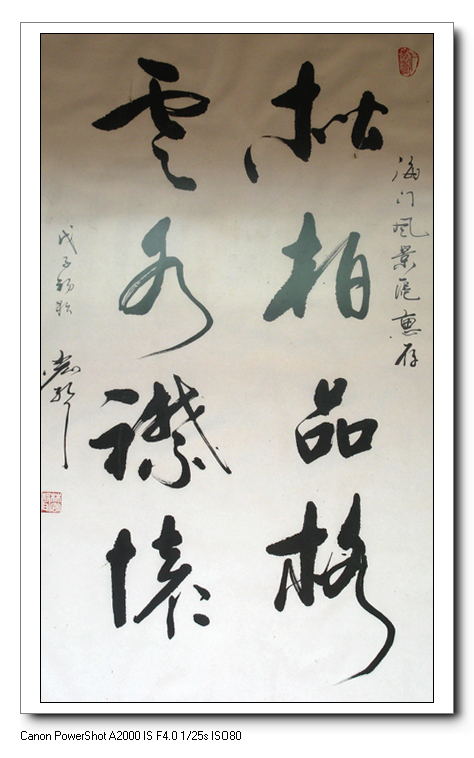 松柏品格
雲水襟懷
海门风景區惠存
戊子初秋
Canon PowerShot A2000 IS F4.0 1/25s ISO80